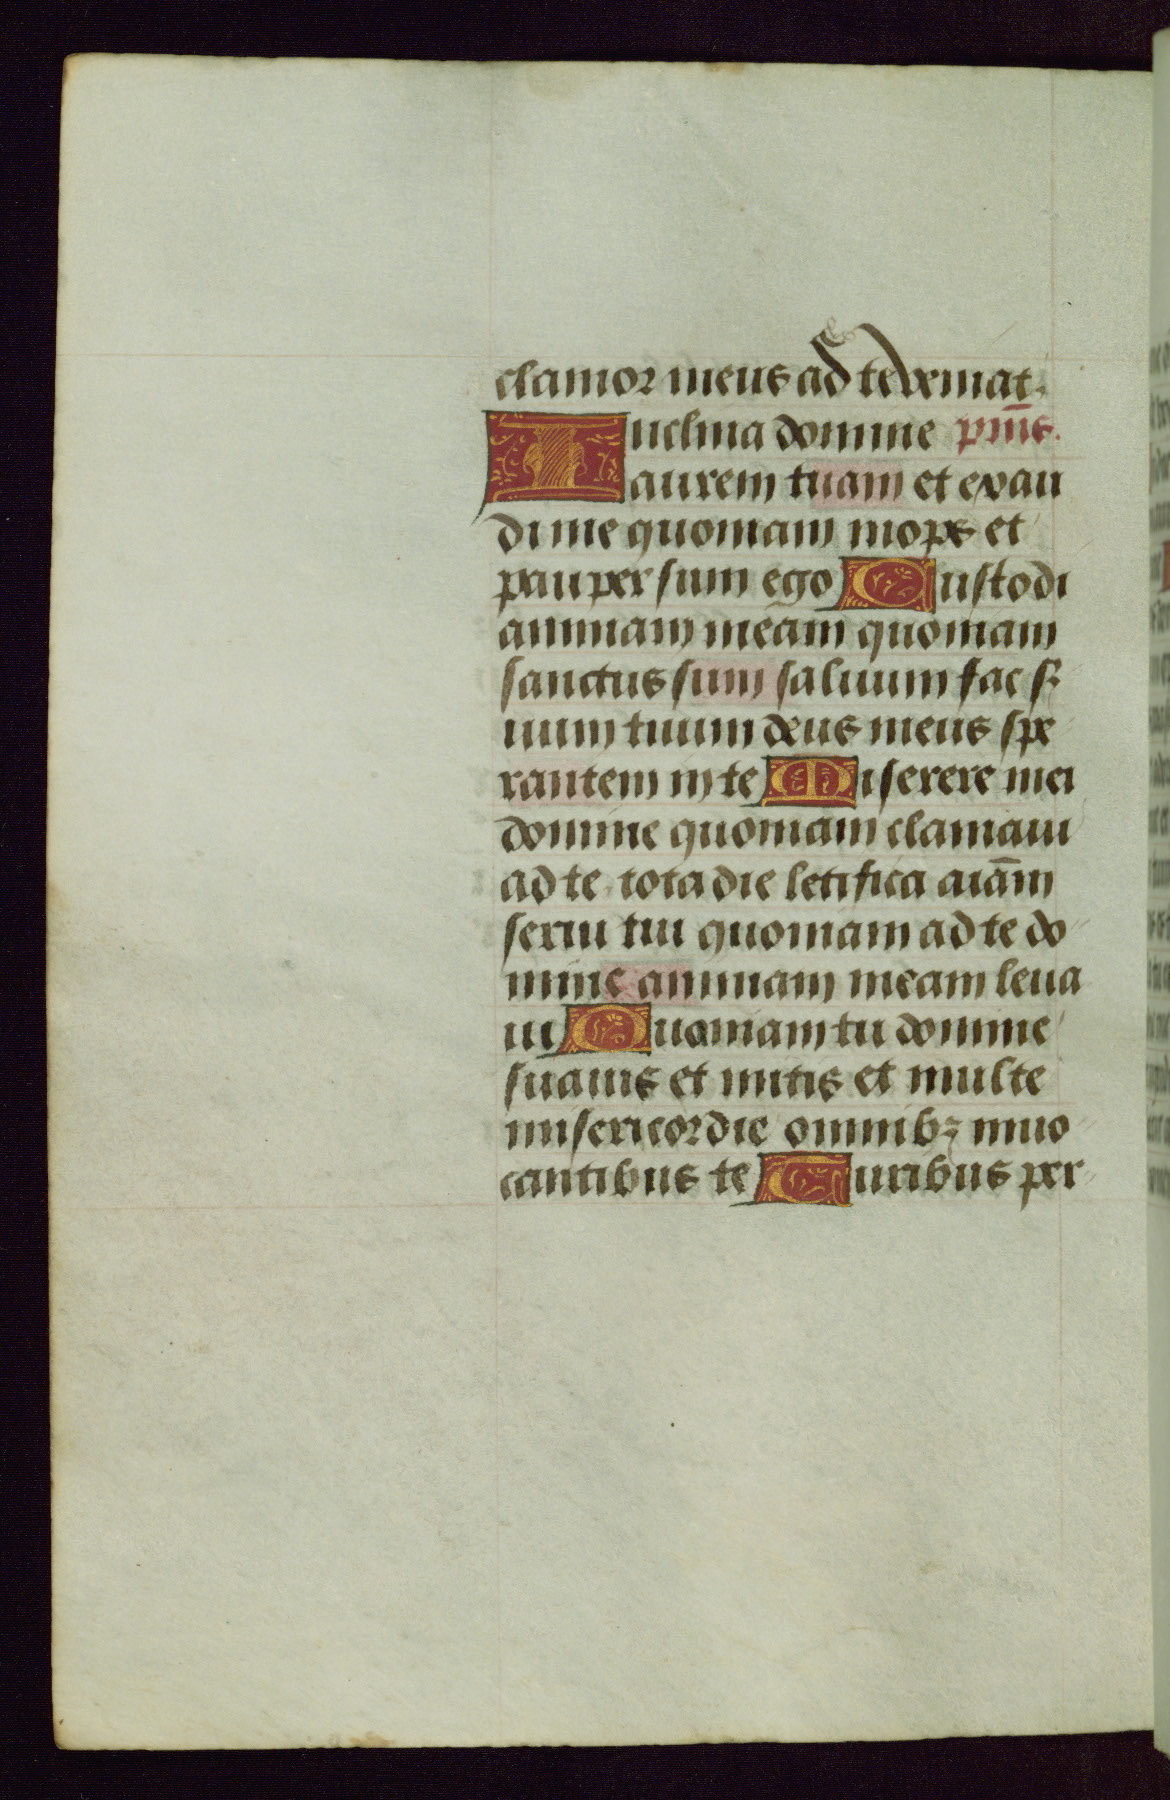 clamor meus ad te veniat.
Inclina domine pm̄s.
aurem tuam et exau
di me quoniam inops et
pauper sum ego Custodi
animam meam quoniam
sanctus sum saluum fac s̄
uum tuum deus meus spe
rantem in te Miserere mei
domine quoniam clamaui
ad te tota die letifica aiām
serui tui quoniam ad te do
mine animam meam leua
ui Quoniam tu domine
suauis et mitis et multe
misericordie omnibꝫ inuo
cantibus te Auribus per